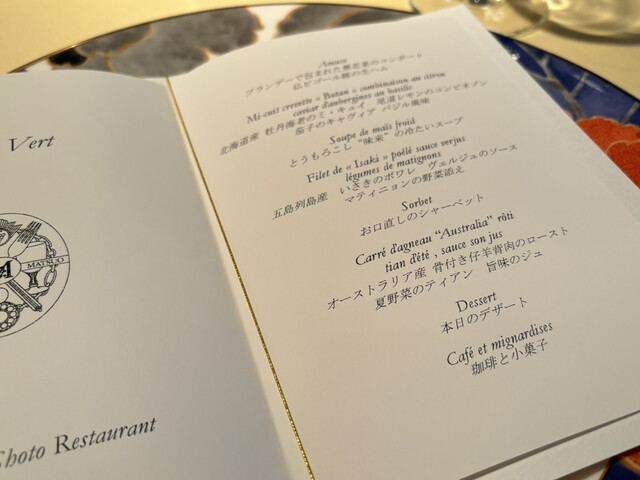 Vert
MATSUO
Shoto Restaurant
Amuse
ブランデーで包まれた無花果のコンポート
仏ビゴール豚の生ハム
Mi-cuit crevette « Botan » combinaison au citron
caviar d'aubergines au basilic
北海道産 牡丹海老のミ・キュイ 尾道レモンのコンビネゾン
茄子のキャヴィア バジル風味
Soupe de maïs froid
とうもろこし “味来” の冷たいスープ
Filet de « Isaki » poêlé sauce verjus
légumes de matignons
五島列島産 いさきのポワレ ヴェルジュのソース
マティニョンの野菜添え
Sorbet
お口直しのシャーベット
Carré d'agneau “Australia” rôti
tian d'été , sauce son jus
オーストラリア産 骨付き仔羊背肉のロースト
夏野菜のティアン 旨味のジュ
Dessert
本日のデザート
Café et mignardises
珈琲と小菓子